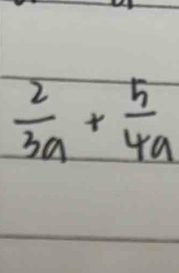 \frac{2}{3a} + \frac{5}{4a}